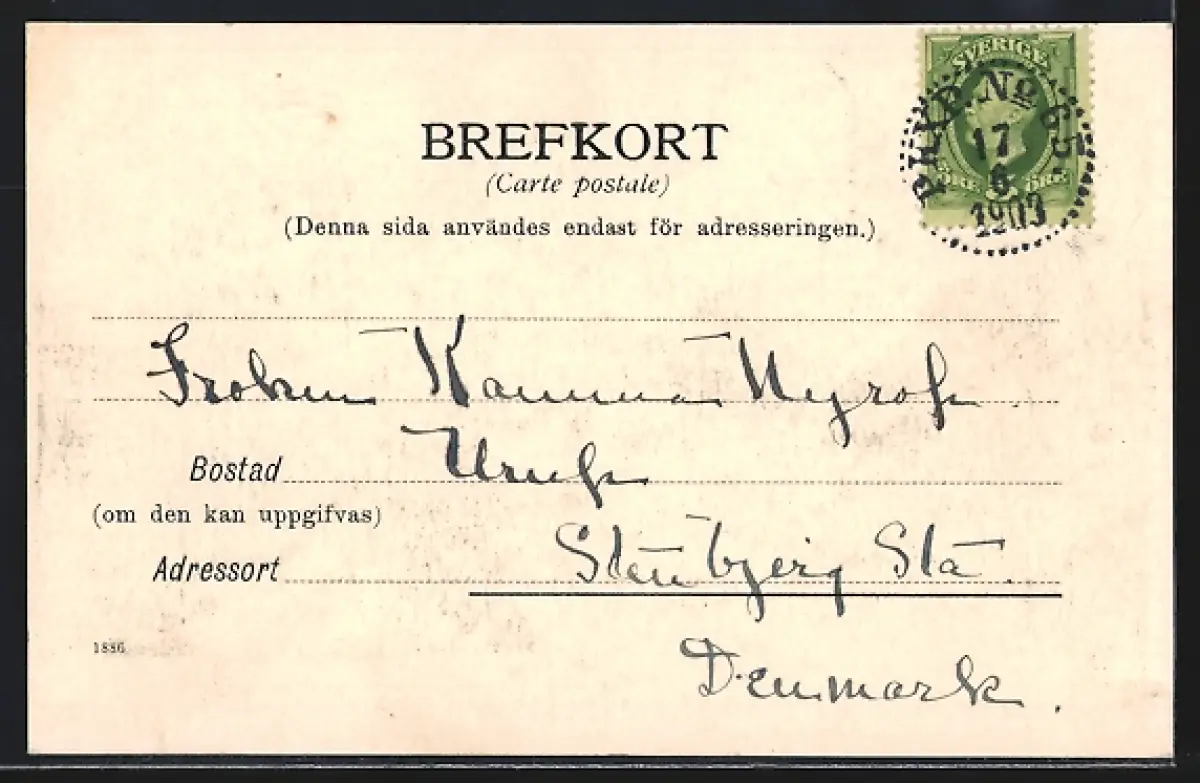 SVERIGE
PKXP. No 65
17
6
1903
ÖRE 5 ÖRE
BREFKORT
(Carte postale)
(Denna sida användes endast för adresseringen.)
Froken
Bostad
(om den kan uppgifvas)
Adressort Stenbjerg Sta.
1886
Denmark.